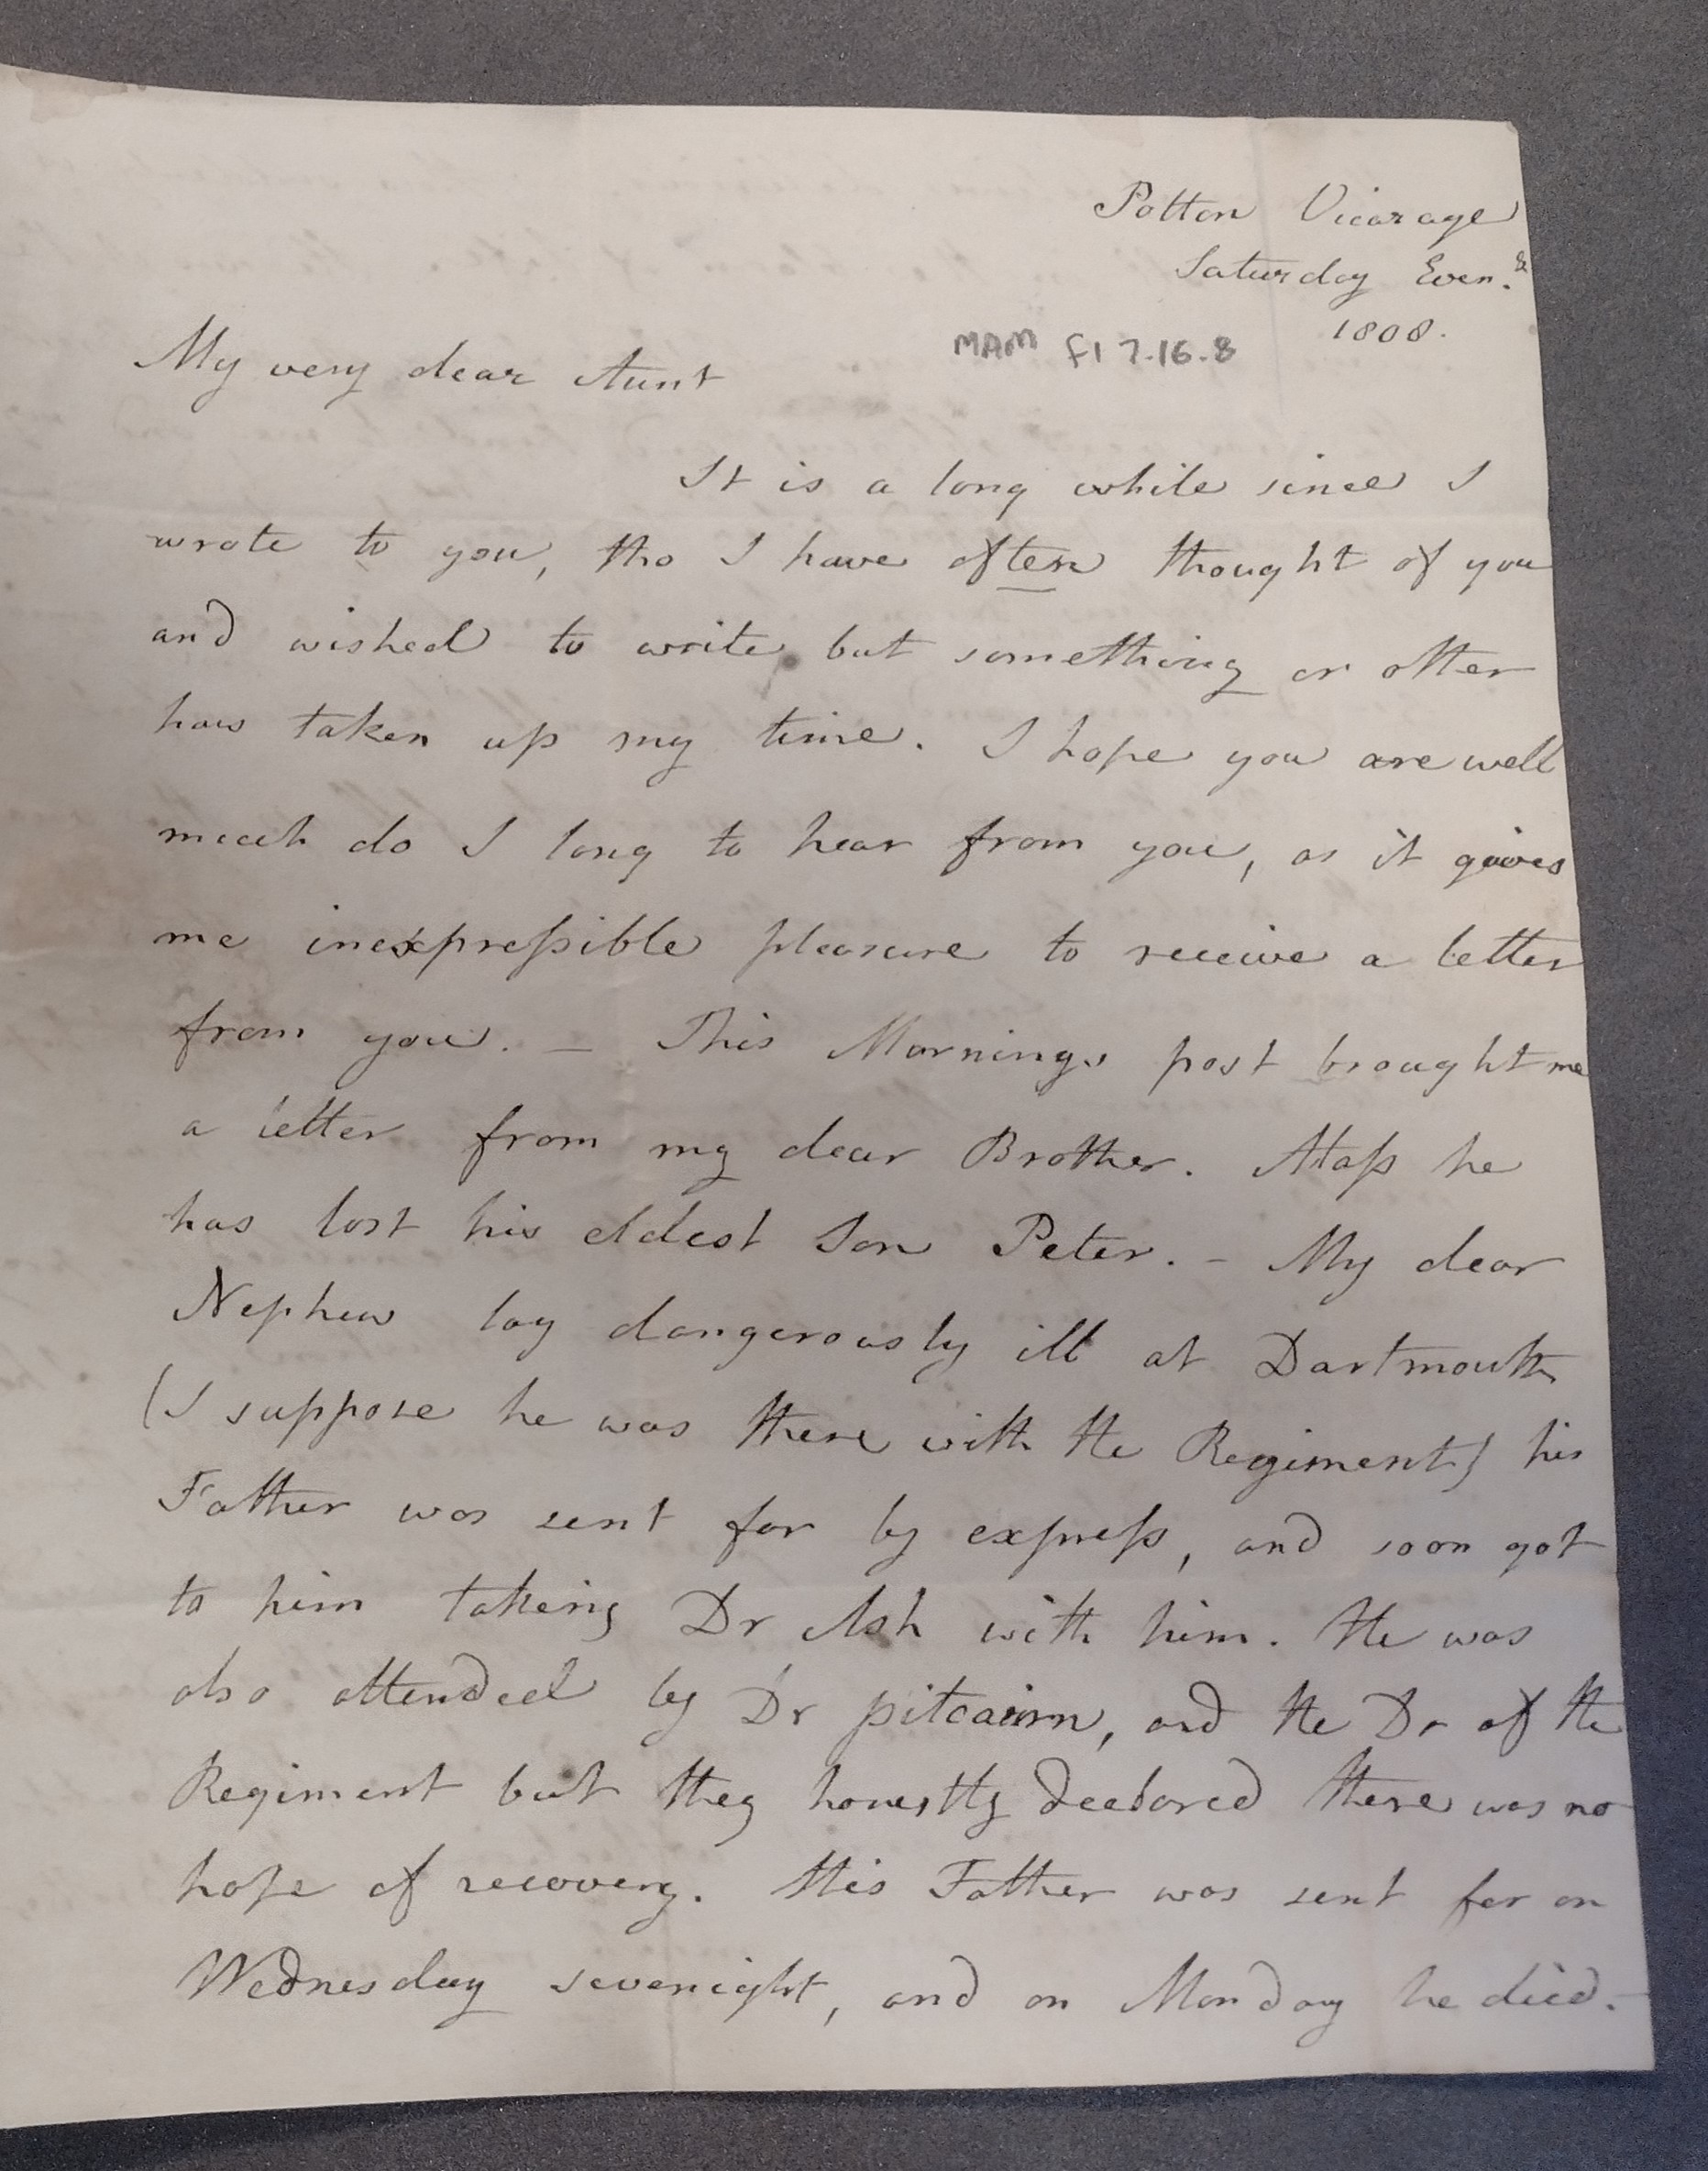 Potton Vicarage
Saturday Eveng.
1808.
MAM F1 7.16.8
My very dear Aunt
It is a long while since I
wrote to you, tho I have often thought of you
and wished to write but something or other
has taken up my time. I hope you are well
much do I long to hear from you, as it gives
me inexpressible pleasure to receive a letter
from you. — This Mornings post brought me
a letter from my dear Brother. Alass he
has lost his eldest Son Peter. - My dear
Nephew lay dangerously ill at Dartmouth
(I suppose he was there with the Regiment) his
Father was sent for by express, and soon got
to him taking Dr Ash with him. He was
also attended by Dr pitcairn, and the Dr of the
Regiment but they honestly declared there was no
hope of recovery. His Father was sent for on
Wednesday sevenight, and on Monday he died.-